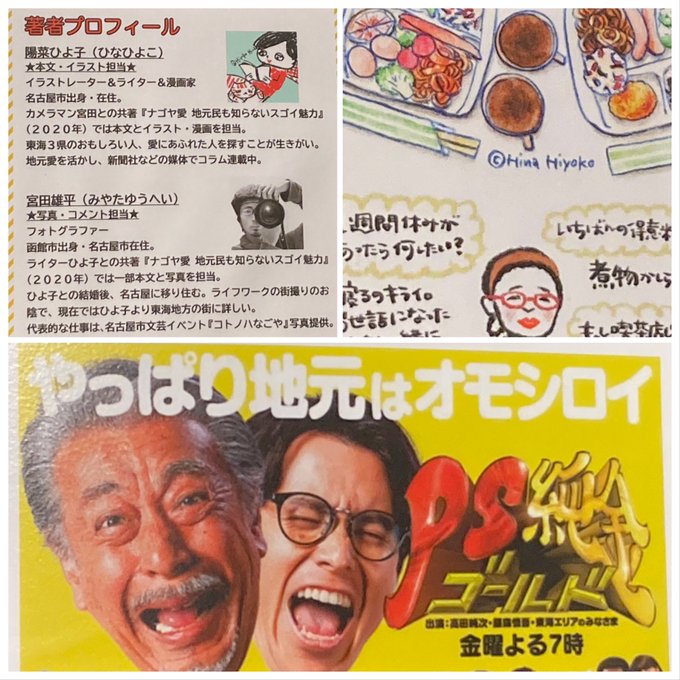 著者プロフィール
陽菜ひよ子（ひなひよこ）
★本文・イラスト担当★
イラストレーター＆ライター＆漫画家
名古屋市出身・在住。
カメラマン宮田との共著『ナゴヤ愛 地元民も知らないスゴイ魅力』
（２０２０年）では本文とイラスト・漫画を担当。
東海３県のおもしろい人、愛にあふれた人を探すことが生きがい。
地元愛を活かし、新聞社などの媒体でコラム連載中。
宮田雄平（みやたゆうへい）
★写真・コメント担当★
フォトグラファー
函館市出身・名古屋市在住。
ライターひよ子との共著『ナゴヤ愛 地元民も知らないスゴイ魅力』
（２０２０年）では一部本文と写真を担当。
ひよ子との結婚後、名古屋に移り住む。ライフワークの街撮りのお
陰で、現在ではひよ子より東海地方の街に詳しい。
代表的な仕事は、名古屋市文芸イベント『コトノハなごや』写真提供。
©Hina Hiyoko
週間休みが
あったら何したい？
寝るのキライ。
お世話になった
いちばんの得意料
煮物から
やっぱり地元はオモシロイ
PS純金
ゴールド
出演：高田純次・藤森慎吾・東海エリアのみなさま
金曜よる7時